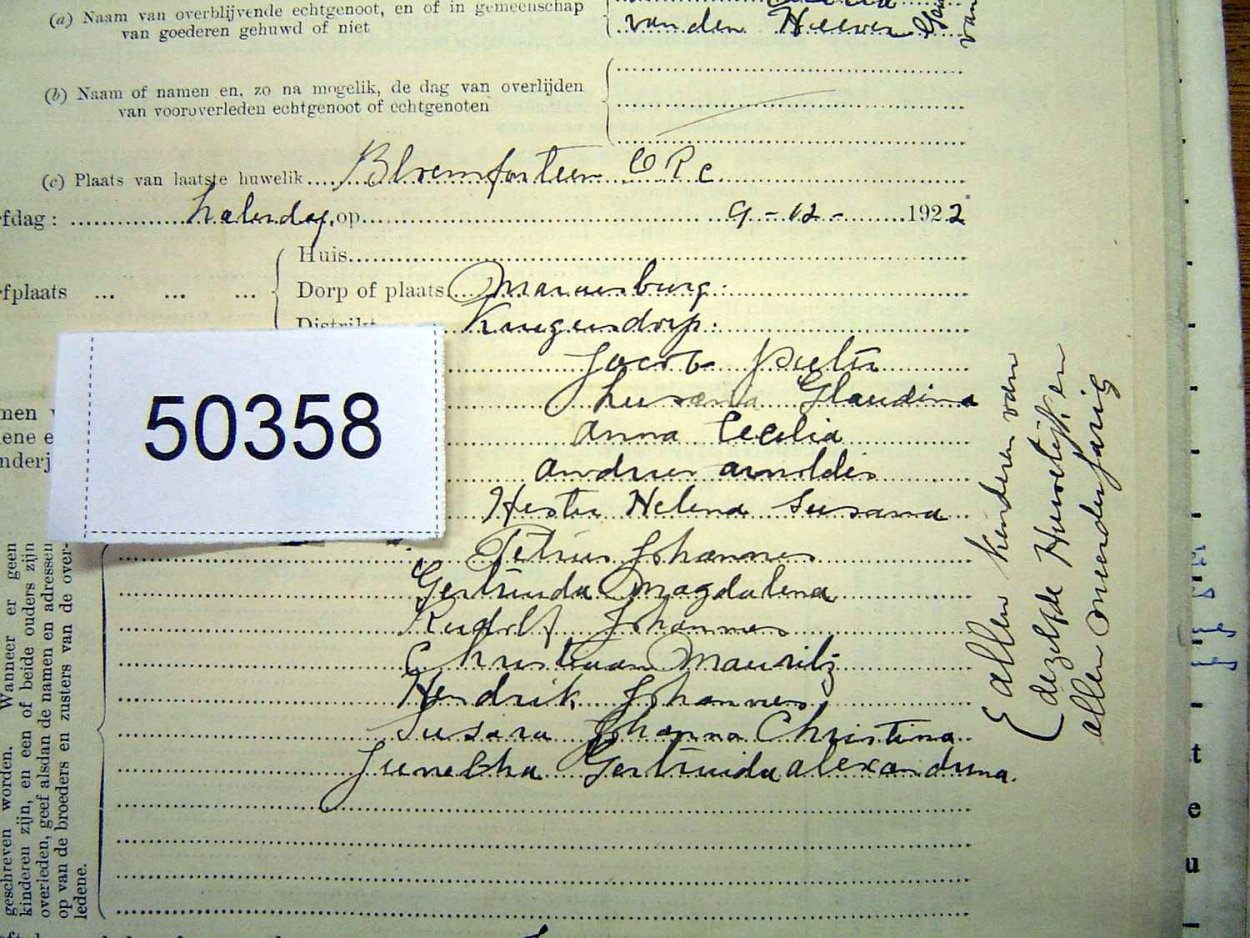 (a) Naam van overblijvende echtgenoot, en of in gemeenschap
van goederen gehuwd of niet
van den Heever
(b) Naam of namen en, zo na mogelik, de dag van overlijden
van vooroverleden echtgenoot of echtgenoten
(c) Plaats van laatste huwelik Bloemfontein O R C
fdag: op 9-12- 1922
Huis
fplaats ... ... ... Dorp of plaats
Distrikt Krugersdorp.
Jacob Pieter
Susana Glaudina
Anna Cecelia
Andries Arnoldis
Hester Helena Susana
Petrus Johannes
Gertruida Magdalena
Rudolf Johannes
Christiaan Mauritz
Hendrik Johannes
Susara Johanna Christina
Gertruida Alexandrina.
50358
allen kinderen van
dezelfde Huwelijk en
allen minderjarig
geschreven worden. Wanneer er geen
kinderen zijn, en een of beide ouders zijn
overleden, geef alsdan de namen en adressen
op van de broeders en zusters van de over-
ledene.
t
e
u